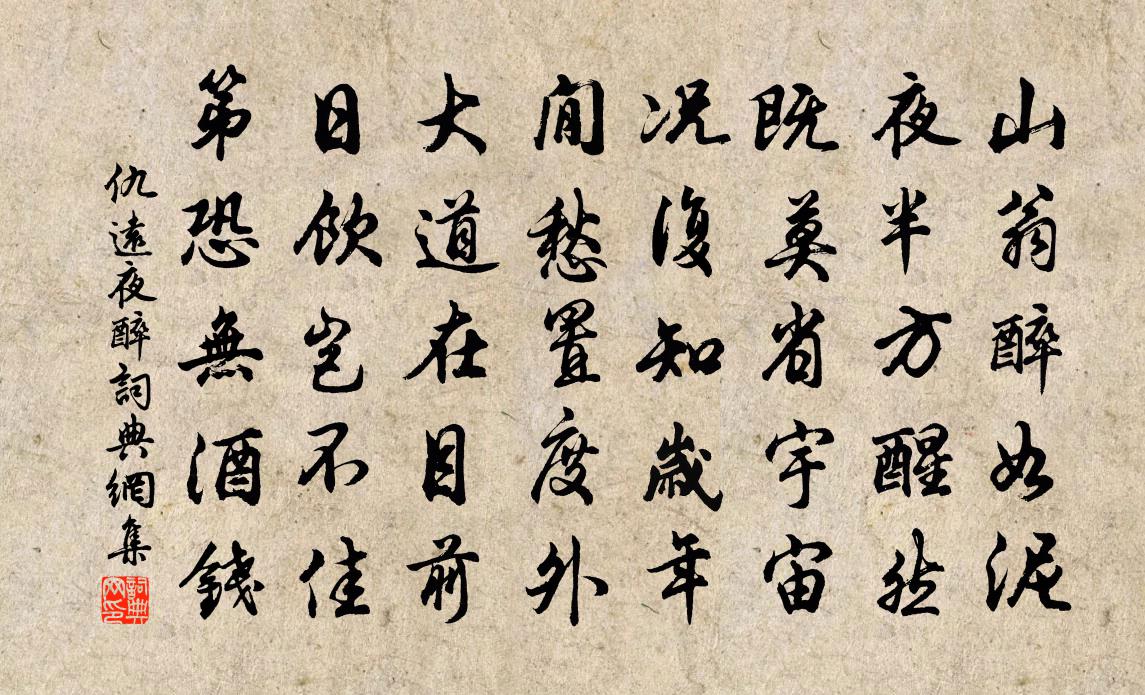 山翁醉如泥
夜半方醒然
既莫省宇宙
况復知歲年
閒愁置度外
大道在目前
日飲豈不佳
第恐無酒錢
仇遠夜醉詞典網集
詞典網印